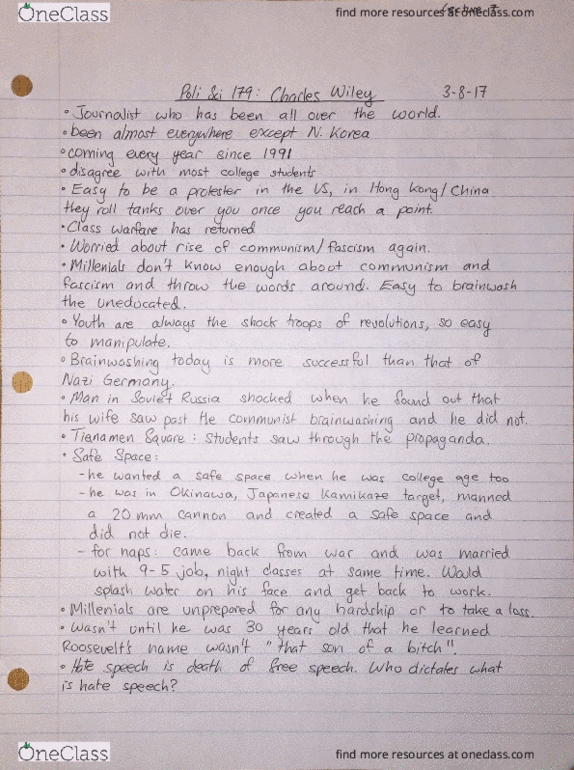 OneClass
find more resources at oneclass.com
Poli Sci 179: Charles Wiley 3-8-17
• Journalist who has been all over the world.
• been almost everywhere except N. Korea
• coming every year since 1991
• disagree with most college students
• Easy to be a protester in the US, in Hong Kong/China
they roll tanks over you once you reach a point.
• Class warfare has returned
• Worried about rise of communism/fascism again.
• Millenials don't know enough about communism and
fascism and throw the words around. Easy to brainwash
the uneducated.
• Youth are always the shock troops of revolutions, so easy
to manipulate.
• Brainwashing today is more successful than that of
Nazi Germany.
• Man in Soviet Russia shocked when he found out that
his wife saw past the communist brainwashing and he did not.
• Tienamen Square: Students saw through the propaganda.
• Safe Space:
- he wanted a safe space when he was college age too
- he was in Okinawa, Japanese Kamikaze target, manned
a 20 mm cannon and created a safe space and
did not die.
- for naps: came back from war and was married
with 9-5 job, night classes at same time. Would
splash water on his face and get back to work.
• Millenials are unprepared for any hardship or to take a loss.
• Wasn't until he was 30 years old that he learned
Roosevelt's name wasn't "that son of a bitch".
• Hate speech is death of free speech. Who dictates what
is hate speech?
OneClass
find more resources at oneclass.com